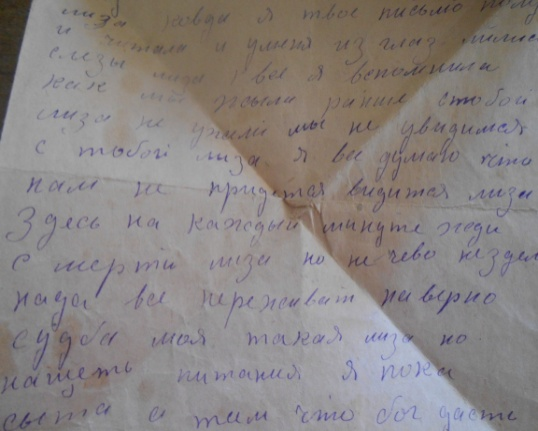 лиза когда я твое письмо полу
и читала и умня из глаз лились
слезы лиза я все я вспомнила
как мы жыли раньше стобой
лиза не ужели мы не увидимся
с тобой лиза. я все думаю что
нам не придется видится лиза
Здесь на каждый минуте жди
смерти лиза но не чево нездел
нада все переживат наверно
судба моя такая лиза но
нащеть питания я пока
сыта а там что бог дасть